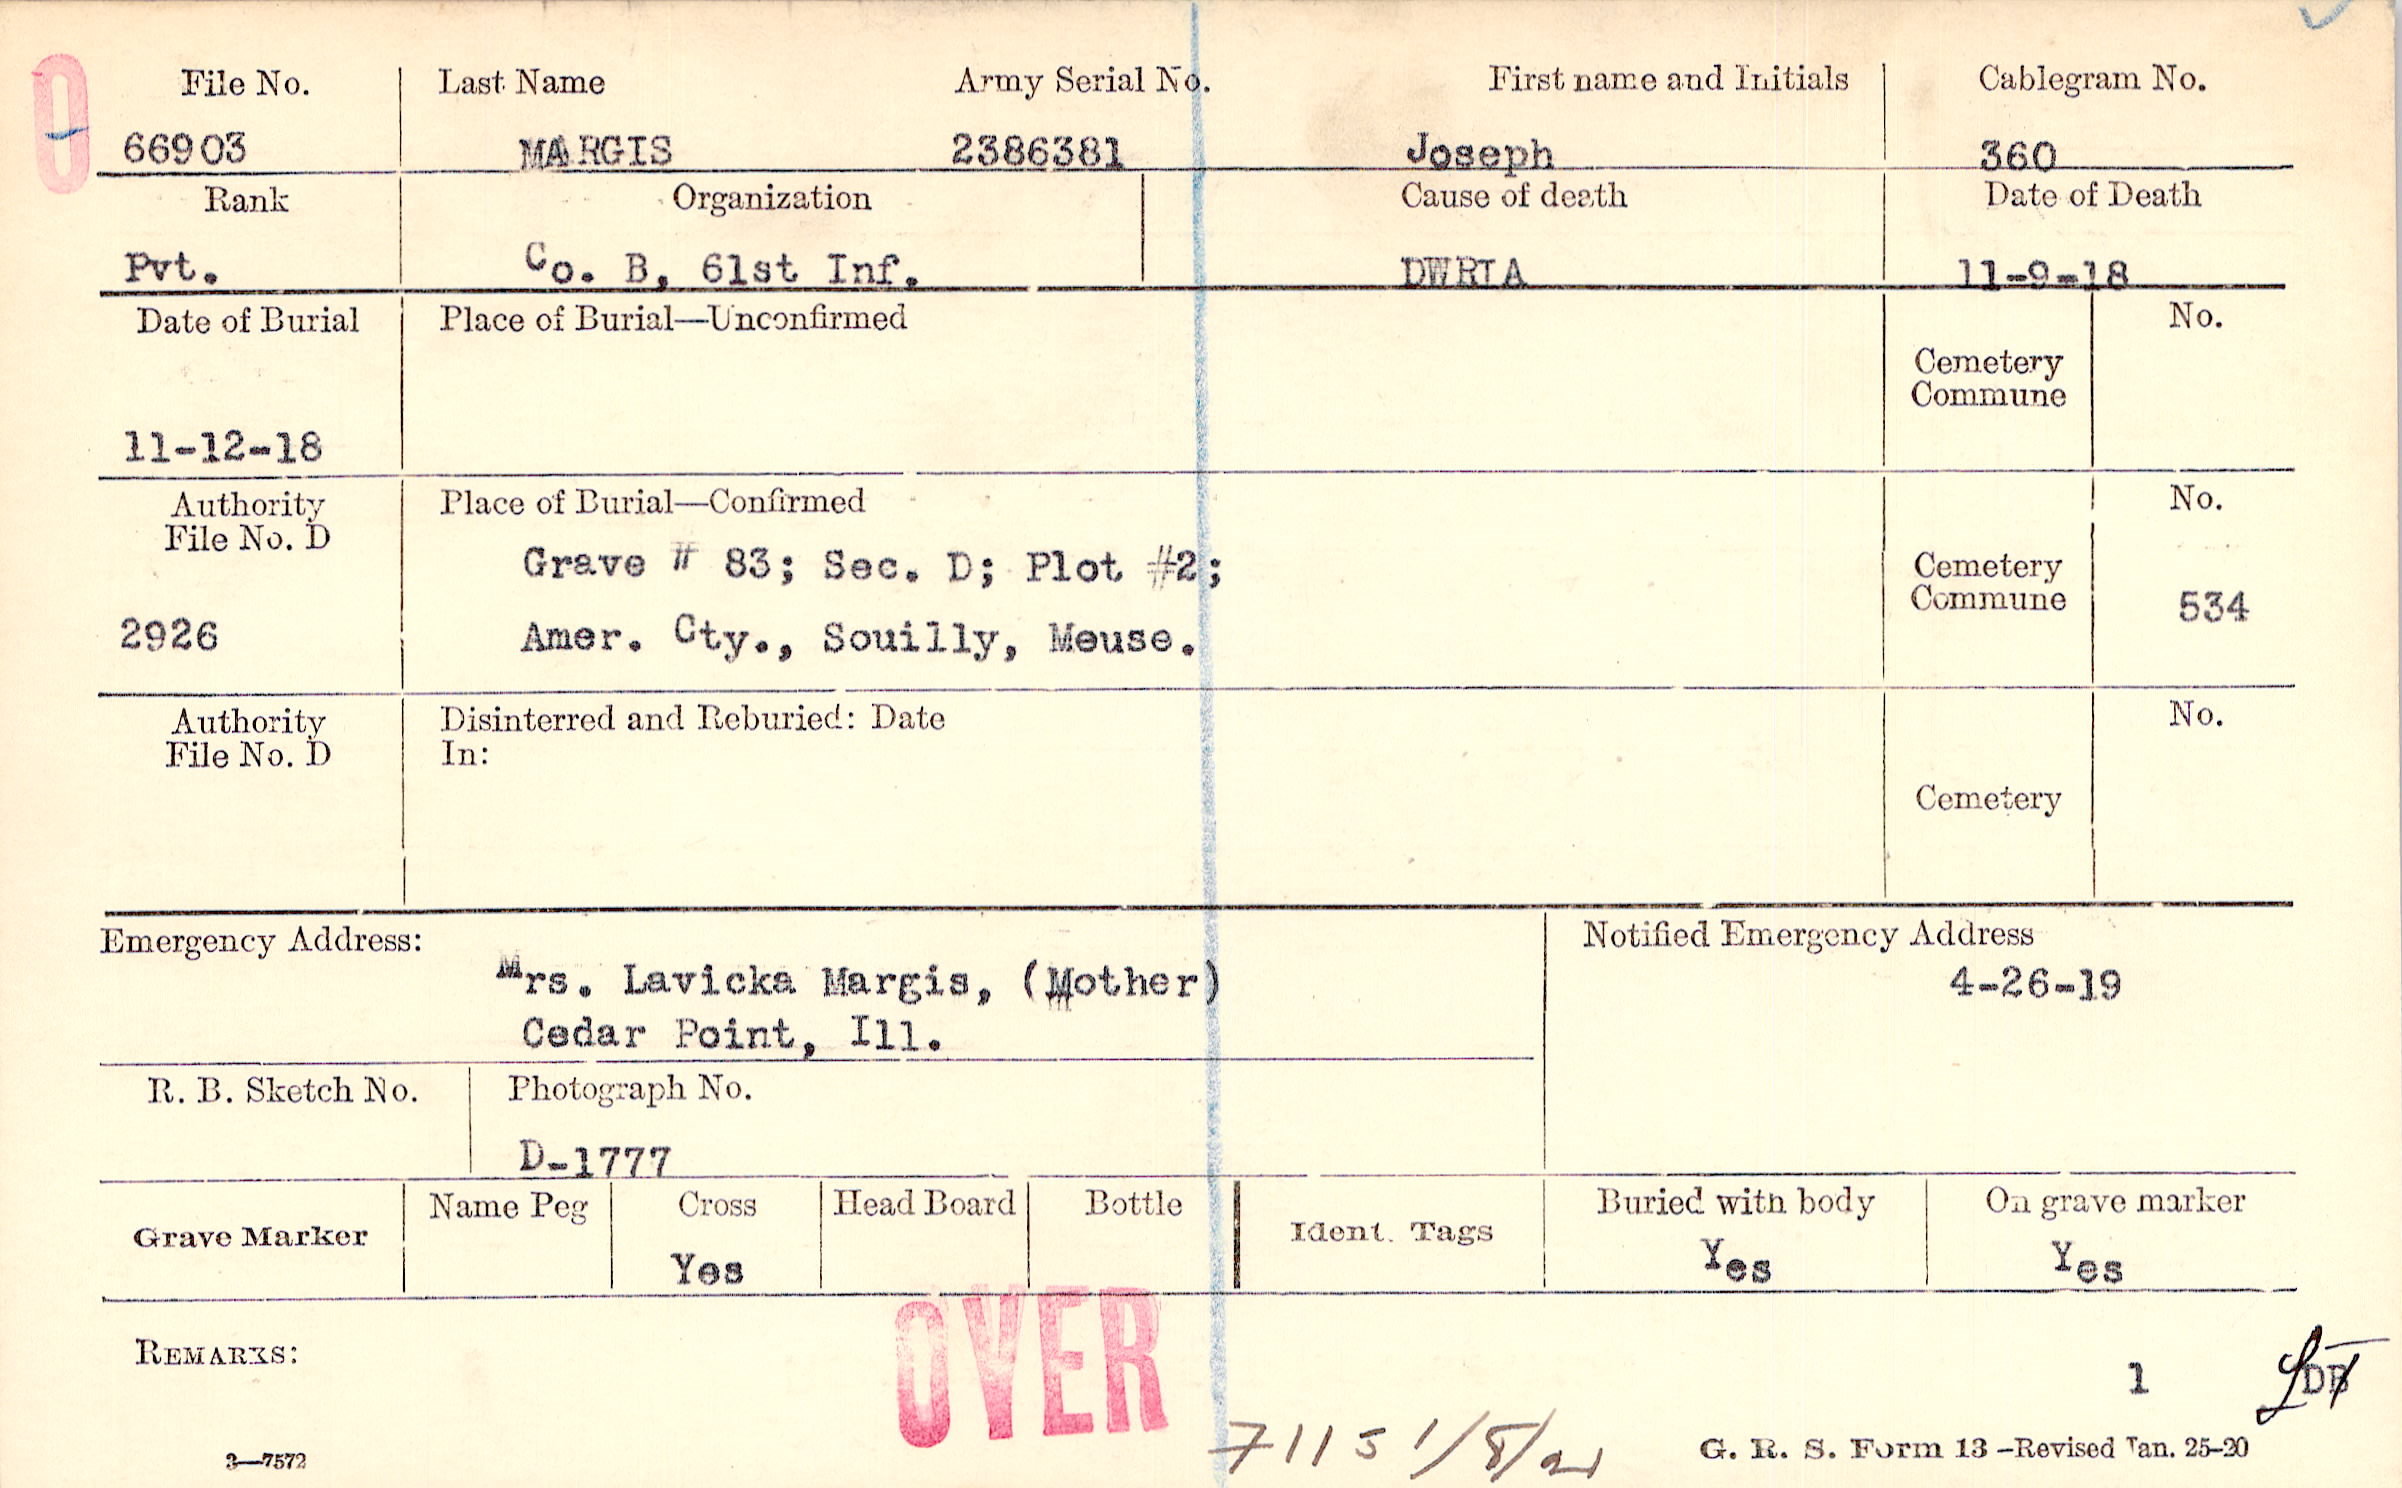 O
File No. Last Name Army Serial No. First name and Initials Cablegram No.
66903 MARGIS 2386381 Joseph 360
Rank Organization Cause of death Date of Death
Pvt. Co. B, 61st Inf. DWRIA 11-9-18
Date of Burial Place of Burial—Unconfirmed No.
Cemetery
Commune
11-12-18
Authority Place of Burial—Confirmed No.
File No. D
Grave # 83; Sec. D; Plot #2; Cemetery
Commune 534
2926 Amer. Cty., Souilly, Meuse.
Authority Disinterred and Reburied: Date No.
File No. D In:
Cemetery
Emergency Address: Notified Emergency Address
Mrs. Lavicka Margis, (Mother) 4-26-19
Cedar Point, Ill.
R. B. Sketch No. Photograph No.
D-1777
Grave Marker Name Peg Cross Head Board Bottle Ident. Tags Buried with body On grave marker
Yes Yes Yes
OVER
REMARKS:
1 DB
7115 1/8/21
3—7572 G. R. S. Form 13—Revised Jan. 25-20